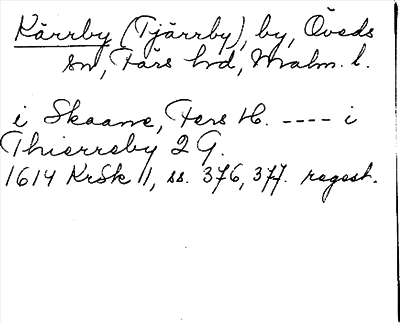 Kärrby (Tjärrby), by, Öveds
sn, Färs hd, Malm. l.
i Skaane, Fers H. ---- i
Thierreby 2 G.
1614 KrSk 11, ss. 376, 377. regest.